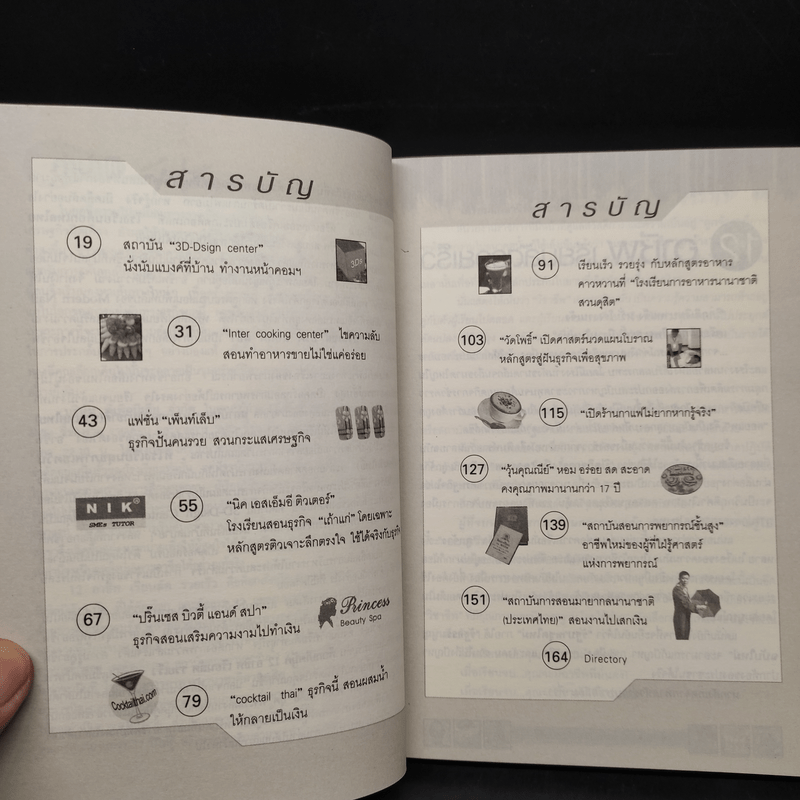 สารบัญ
19
สถาบัน "3D-Dsign center"
นั่งนับแบงค์ที่บ้าน ทำงานหน้าคอมฯ
31
"Inter cooking center" ไขความลับ
สอนทำอาหารขายไม่ใช่แค่อร่อย
43
แฟชั่น "เพ็นท์เล็บ"
ธุรกิจปั้นคนรวย สวนกระแสเศรษฐกิจ
NIK®
SMEs TUTOR
55
"นิค เอสเอ็มอี ติวเตอร์"
โรงเรียนสอนธุรกิจ "เถ้าแก่" โดยเฉพาะ
หลักสูตรติวเจาะลึกตรงใจ ใช้ได้จริงกับธุรกิจ
67
"ปริ๊นเซส บิวตี้ แอนด์ สปา"
ธุรกิจสอนเสริมความงามไปทำเงิน
Princess
Beauty Spa
Cocktailthai.com
79
"cocktail thai" ธุรกิจนี้ สอนผสมน้ำ
ให้กลายเป็นเงิน
สารบัญ
91
เรียนเร็ว รวยรุ่ง กับหลักสูตรอาหาร
คาวหวานที่ "โรงเรียนการอาหารนานาชาติ
สวนดุสิต"
103
"วัดโพธิ์" เปิดศาสตร์นวดแผนโบราณ
หลักสูตรสู่ฝันธุรกิจเพื่อสุขภาพ
115
"เปิดร้านกาแฟไม่ยากหากรู้จริง"
127
"วุ้นคุณณีย์" หอม อร่อย สด สะอาด
คงคุณภาพมานานกว่า 17 ปี
139
"สถาบันสอนการพยากรณ์ชั้นสูง"
อาชีพใหม่ของผู้ที่ใฝ่รู้ศาสตร์
แห่งการพยากรณ์
151
"สถาบันการสอนมายากลนานาชาติ
(ประเทศไทย)" สอนงานไปเสกเงิน
164
Directory